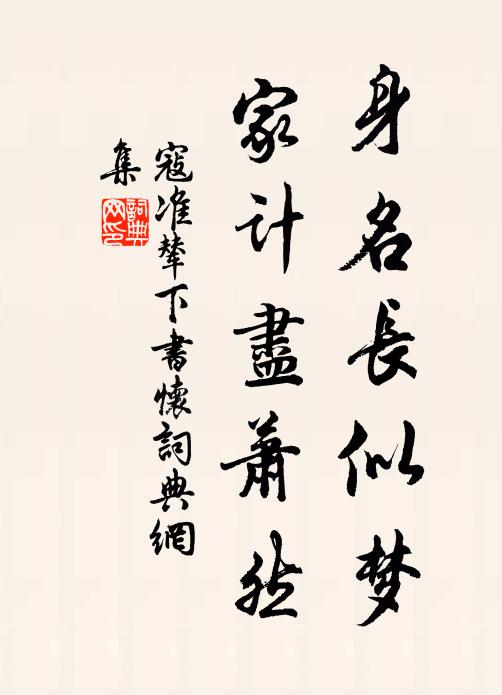 身名長似梦
家计盡蕭然
寇准輦下書懷詞典網
集
詞典
网印